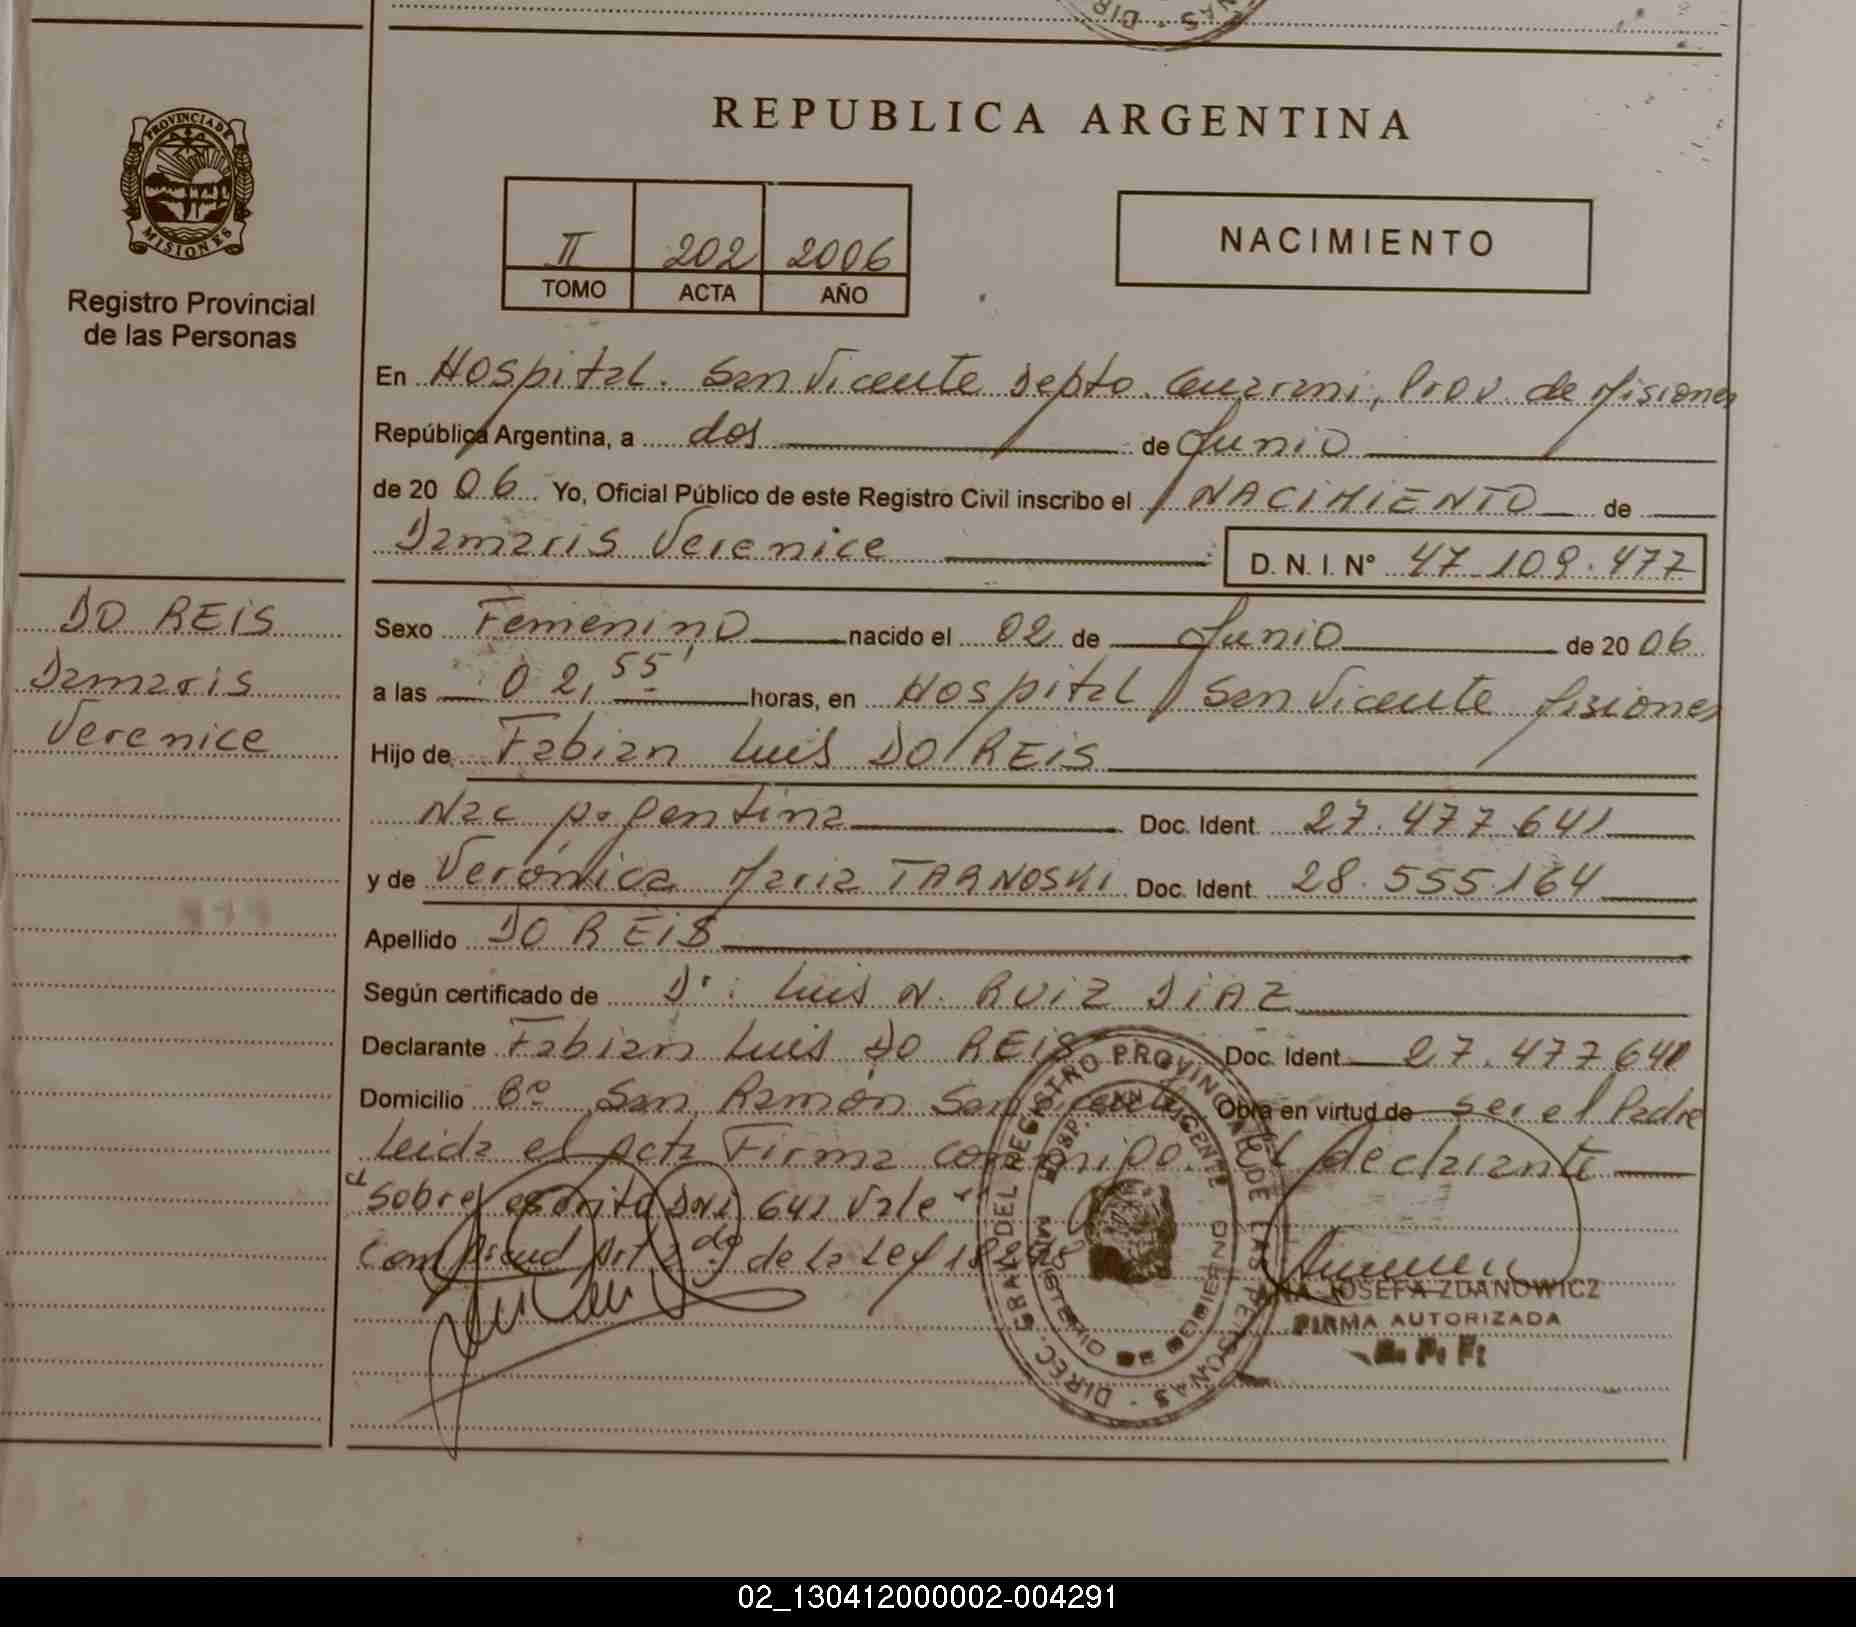 REPUBLICA ARGENTINA
PROVINCIA DE
MISIONES
Registro Provincial
de las Personas
II 202 2006
TOMO ACTA AÑO
NACIMIENTO
En Hospital. San Vicente Depto. Guarani, Prov. de Misiones
República Argentina, a dos de Junio
de 20 06 Yo, Oficial Público de este Registro Civil inscribo el NACIMIENTO de
Damaris Verenice D. N. I. Nº 47.109.477
DO REIS
Damaris
Verenice
Sexo Femenino nacido el 02 de Junio de 20 06
a las 02,55' horas, en Hospital San Vicente Misiones
Hijo de Fabian Luis DO REIS
Nac Argentina Doc. Ident. 27.477.641
y de Verónica Maria TARNOSKI Doc. Ident. 28.555.164
Apellido DO REIS
Según certificado de Dr: Luis N. RUIZ DIAZ
Declarante Fabian Luis Do REIS Doc. Ident 27.477.641
Domicilio Bº San Ramón San Vicente Obra en virtud de ser el Padre
Leida el Acta Firma conmigo. El declarante
Sobre escrito DNI 641 Vale
Art 2do de la Ley
DIREC. GRAL DEL REGISTRO PROVINCIAL DE LAS PERSONAS
HOSP. SAN VICENTE
MINISTERIO DE GOBIERNO
ANA JOSEFA ZDANOWICZ
FIRMA AUTORIZADA
02_130412000002-004291